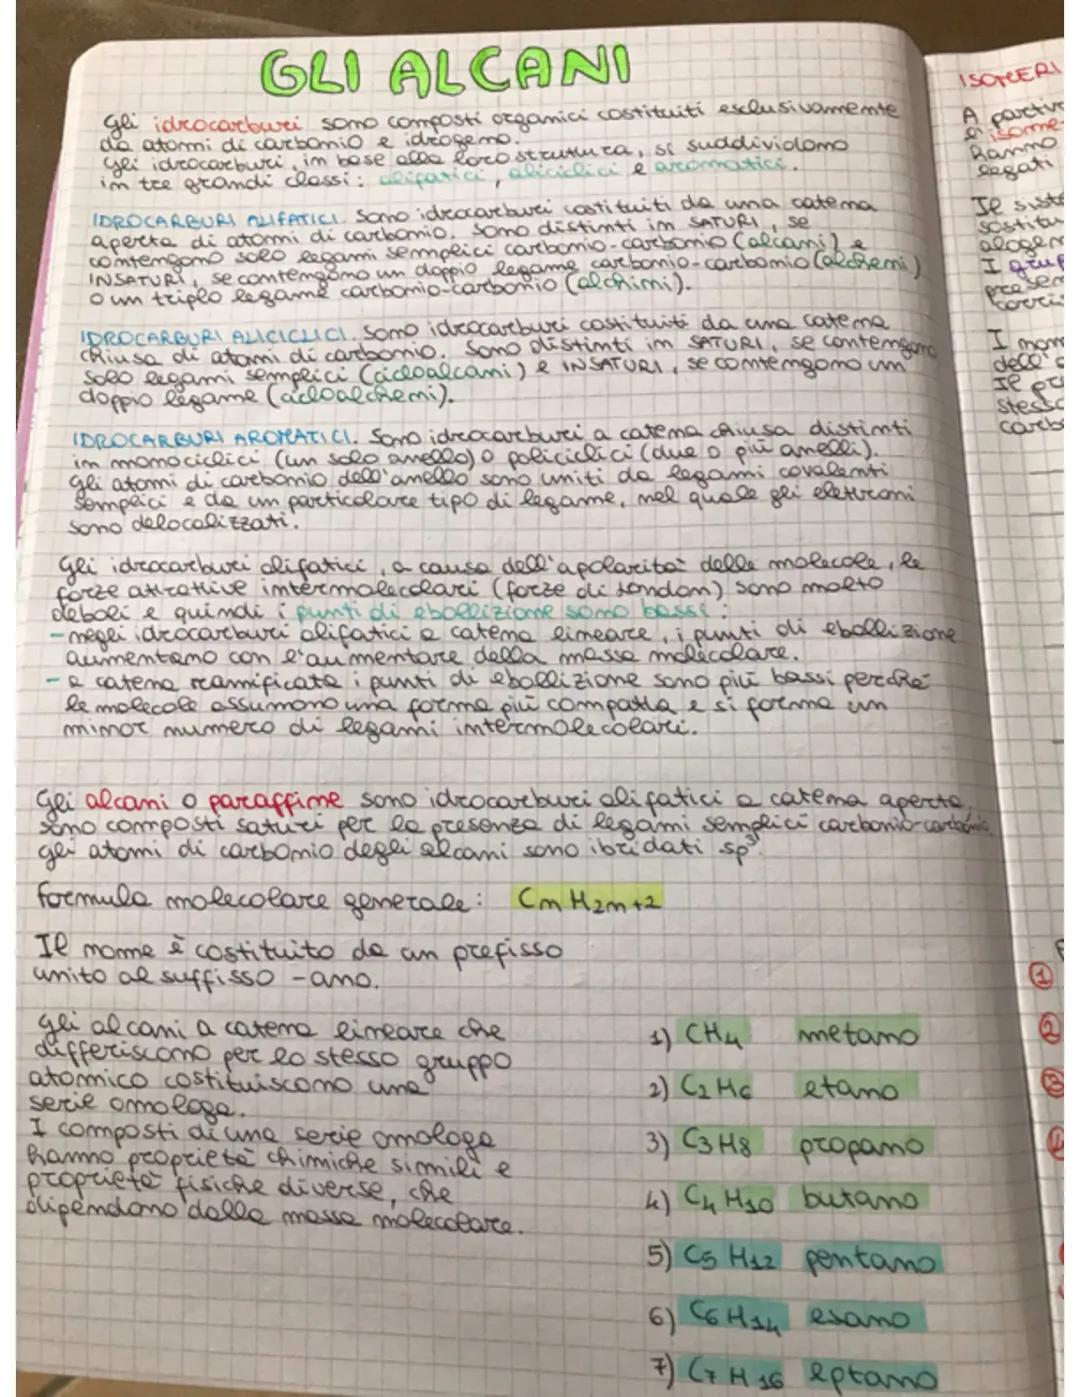 GLI ALCANI
Gli idrocarburi sono composti organici costituiti esclusivamente
da atomi di carbonio e idrogeno.
Gli idrocarburi, in base alla loro struttura, si suddividono
in tre grandi classi: alifatici, aliciclici e aromatici.
IDROCARBURI ALIFATICI. Sono idrocarburi costituiti da una catena
aperta di atomi di carbonio. Sono distinti in SATURI, se
contengono solo legami semplici carbonio-carbonio (alcani) e
INSATURI, se contengono un doppio legame carbonio-carbonio (alcheni)
o un triplo legame carbonio-carbonio (alchini).
IDROCARBURI ALICICLICI. Sono idrocarburi costituiti da una catena
chiusa di atomi di carbonio. Sono distinti in SATURI, se contengono
solo legami semplici (cicloalcani) e INSATURI, se contengono un
doppio legame (cicloalcheni).
IDROCARBURI AROMATICI. Sono idrocarburi a catena chiusa distinti
in monociclici (un solo anello) o policiclici (due o più anelli).
Gli atomi di carbonio dell'anello sono uniti da legami covalenti
semplici e da un particolare tipo di legame, nel quale gli elettroni
sono delocalizzati.
Gli idrocarburi alifatici, a causa dell'apolarità delle molecole, le
forze attrattive intermolecolari (forze di London) sono molto
deboli e quindi i punti di ebollizione sono bassi:
- negli idrocarburi alifatici a catena lineare, i punti di ebollizione
aumentano con l'aumentare della massa molecolare.
- a catena ramificata i punti di ebollizione sono più bassi perché
le molecole assumono una forma più compatta e si forma un
minor numero di legami intermolecolari.
Gli alcani o paraffine sono idrocarburi alifatici a catena aperta,
sono composti saturi per la presenza di legami semplici carbonio-carbonio
gli atomi di carbonio degli alcani sono ibridati sp³.
formula molecolare generale: CnH2n+2
Il nome è costituito da un prefisso
unito al suffisso -ano.
Gli alcani a catena lineare che
differiscono per lo stesso gruppo
atomico costituiscono una
serie omologa.
I composti di una serie omologa
hanno proprietà chimiche simili e
proprietà fisiche diverse, che
dipendono dalla massa molecolare.
1) CH4 metano
2) C2H6 etano
3) C3H8 propano
4) C4H10 butano
5) C5H12 pentano
6) C6H14 esano
7) C7H16 eptano
ISOMERI
A partire
Hanno
legati
Il
I
dell'
Il
①
②
③